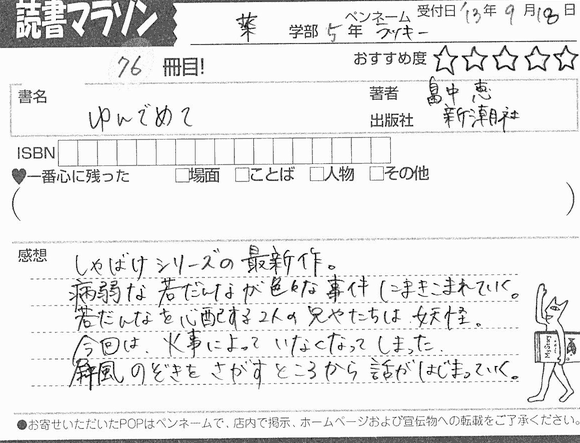 読書マラソン
薬 学部 5年 ペンネーム ブッキー 受付日 '13年9月18日
76 冊目!
おすすめ度 ☆☆☆☆☆
書名 ゆんでめて
著者 畠中 恵
出版社 新潮社
ISBN
♥一番心に残った □場面 □ことば □人物 □その他
( )
感想
しゃばけシリーズの最新作。
病弱な若だんなが色々な事件にまきこまれていく。
若だんなを心配する2人の兄やたちは妖怪。
今回は、火事によっていなくなってしまった
屏風のぞきをさがすところから話がはじまっていく。
●お寄せいただいたPOPはペンネームで、店内で掲示、ホームページおよび宣伝物への転載をご了承ください。